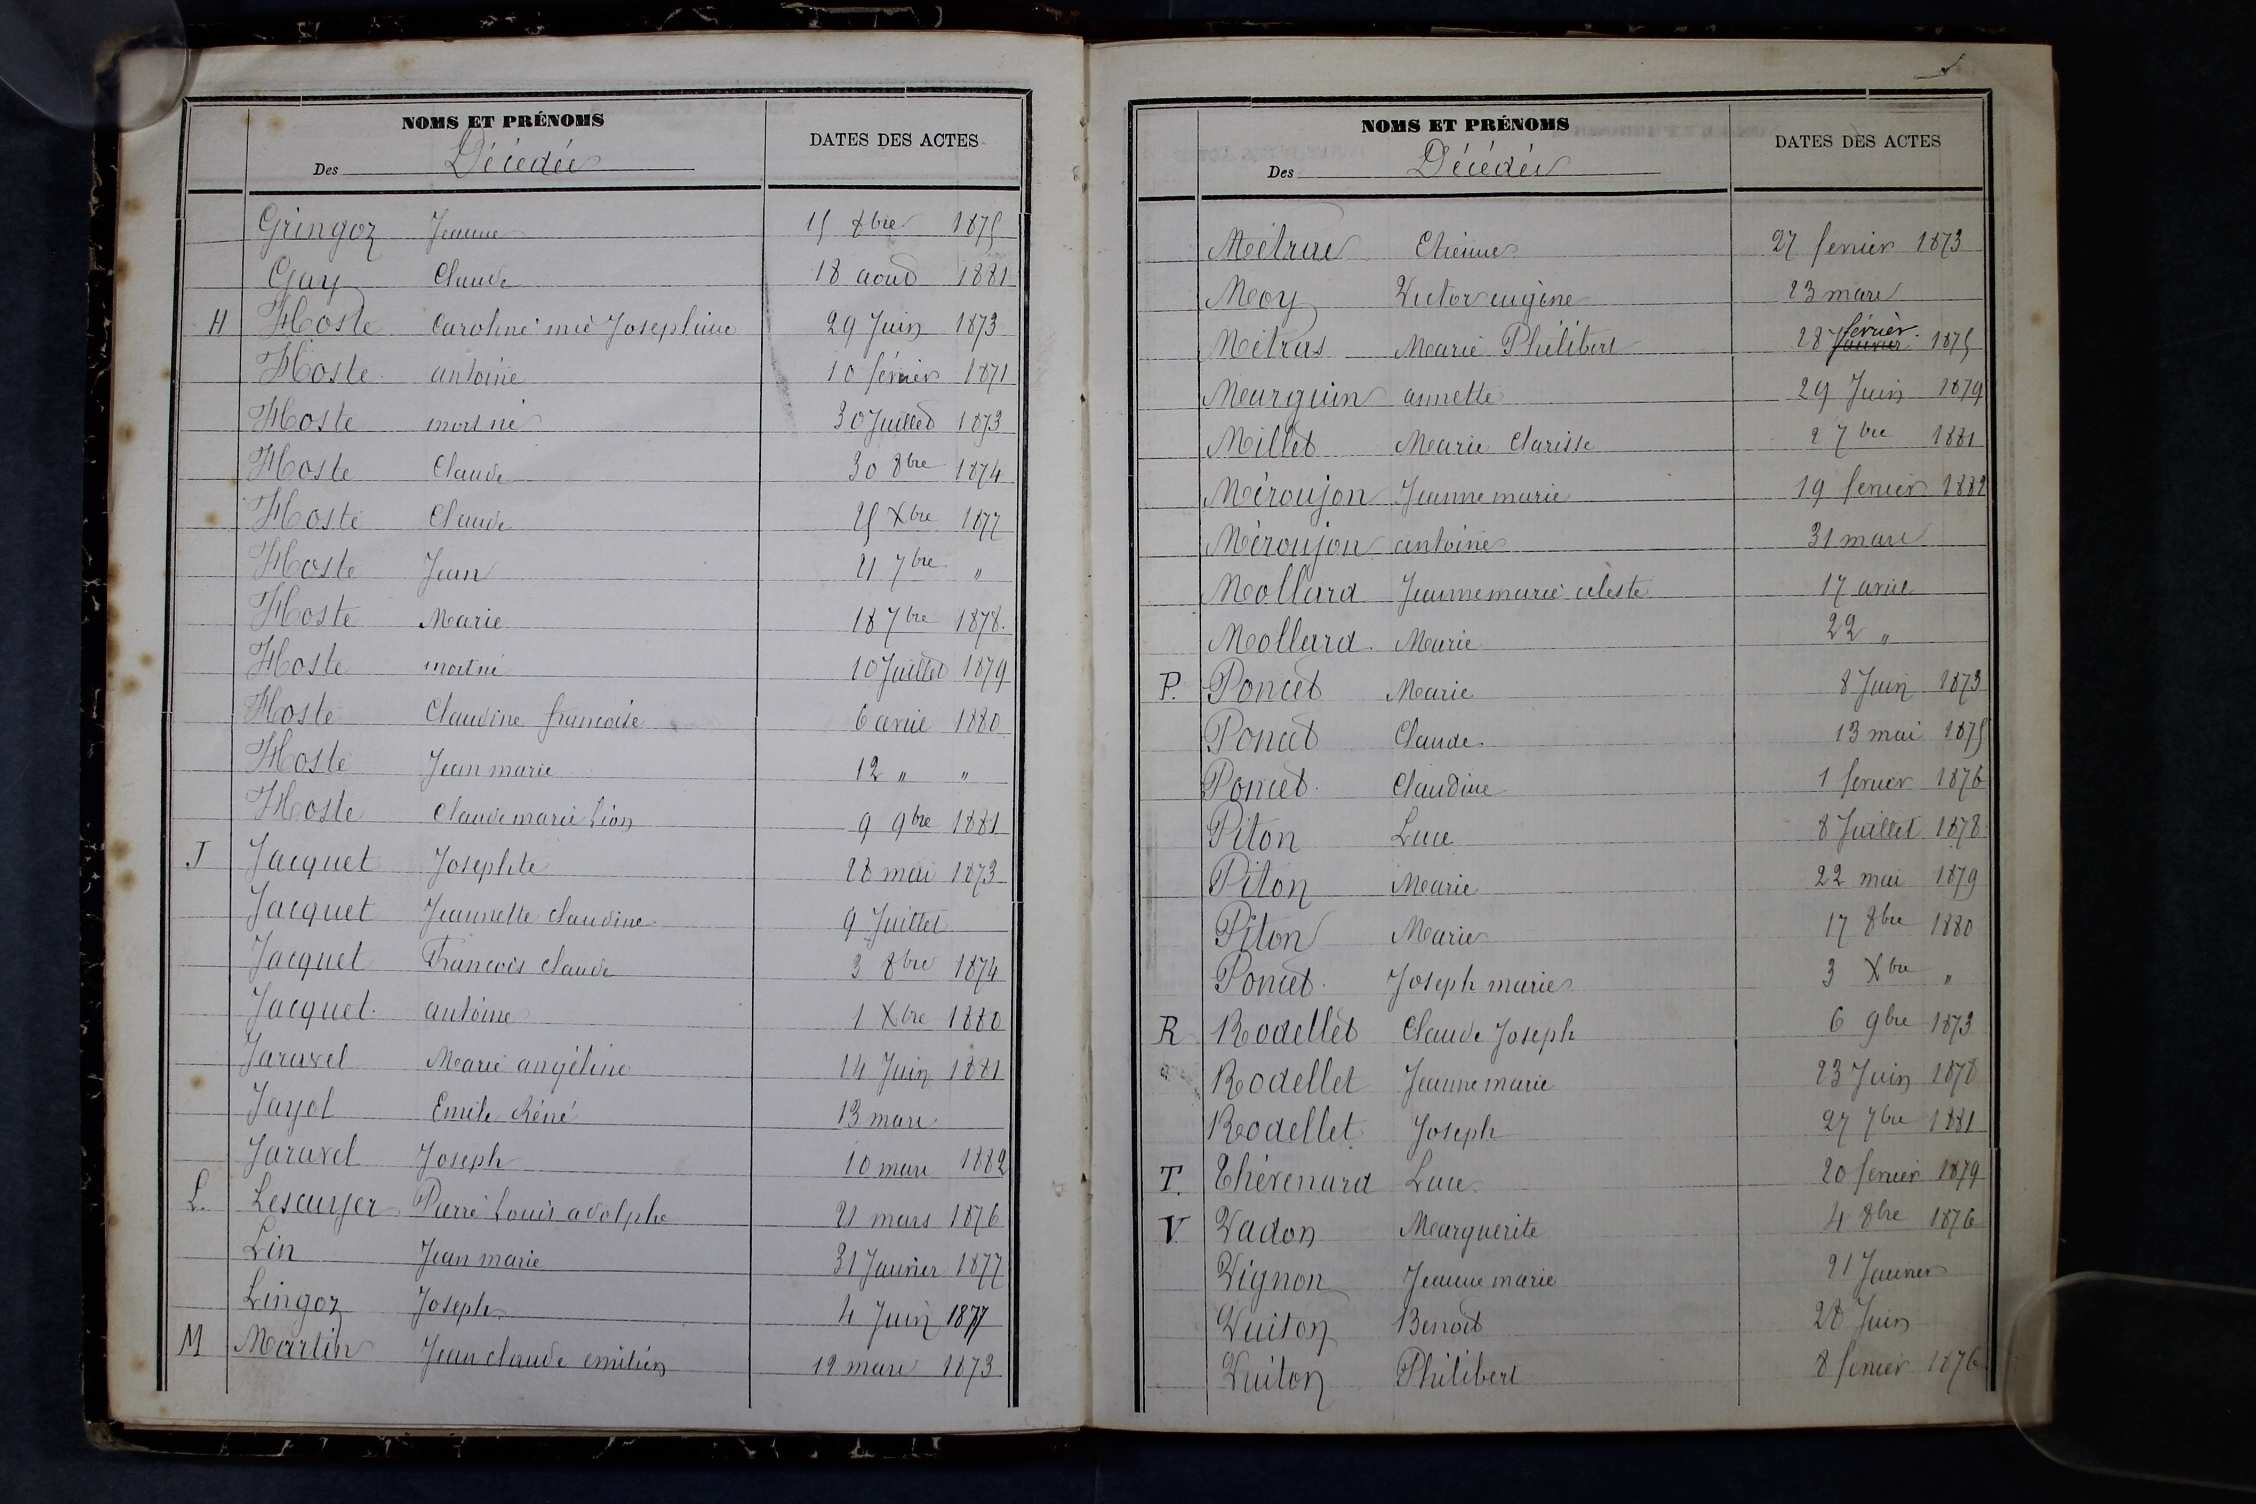 NOMS ET PRÉNOMS
Des Décédés
DATES DES ACTES
Gringoz Jeanne 15 Xbre 1875
Gay Claude 18 aout 1881
H Hoste Caroline mie Josephine 29 Juin 1873
Hoste antoine 10 février 1871
Hoste mort né 30 Juillet 1873
Hoste Claude 30 8bre 1874
Hoste Claude 25 Xbre 1877
Hoste Jean 21 7bre "
Hoste Marie 18 7bre 1878.
Hoste mort né 10 Juillet 1879
Hoste Claudine francoise 6 avril 1880
Hoste Jean marie 12 " "
Hoste Claude marie Léon 9 9bre 1881
J Jacquet Josephte 28 mai 1873
Jacquet Jeannette claudine 9 Juillet
Jacquet Francois claude 3 8bre 1874
Jacquet. antoine 1 Xbre 1880
Jaravel Marie angéline 14 Juin 1881
Jayol Emile Réné 13 mars
Jaravel Joseph 10 mars 1882
L. Lescuyer Pierre Louis adolphe 21 mars 1876
Lin Jean marie 31 Janvier 1877
Lingoz Joseph 4 Juin 1877
M Martin Jean claude emilien 12 mars 1873
NOMS ET PRÉNOMS
Des Décédés
DATES DES ACTES
Métras Etienne 27 fevrier 1873
Moy Victor eugène 23 mars
Métras Marie Philibert 28 Janvier février. 1875
Murguin annette 29 Juin 1879
Millet Marie Clarisse 2 7bre 1881
Méroujon Jeanne marie 19 fevrier 1882
Méroujon antoine 31 mars
Mollard Jeanne marie céleste 17 avril
Mollard. Marie 22 "
P. Poncet Marie 8 Juin 1873
Poncet Claude. 13 mai 1875
Poncet. Claudine 1 fevrier 1876
Piton Luce 8 Juillet 1878.
Piton Marie 22 mai 1879
Piton Marie 17 8bre 1880
Poncet. Joseph marie 3 Xbre "
R Rodellet Claude Joseph 6 9bre 1873
Rodellet Jeanne marie 23 Juin 1878
Rodellet Joseph 27 7bre 1881
T. Thévenard Luce. 20 fevrier 1879
V Vadon Marguerite 4 8bre 1876
Vignon Jeanne marie 21 Janvier
Vuiton Benoit 28 Juin
Vuiton Philibert 8 fevrier 1876